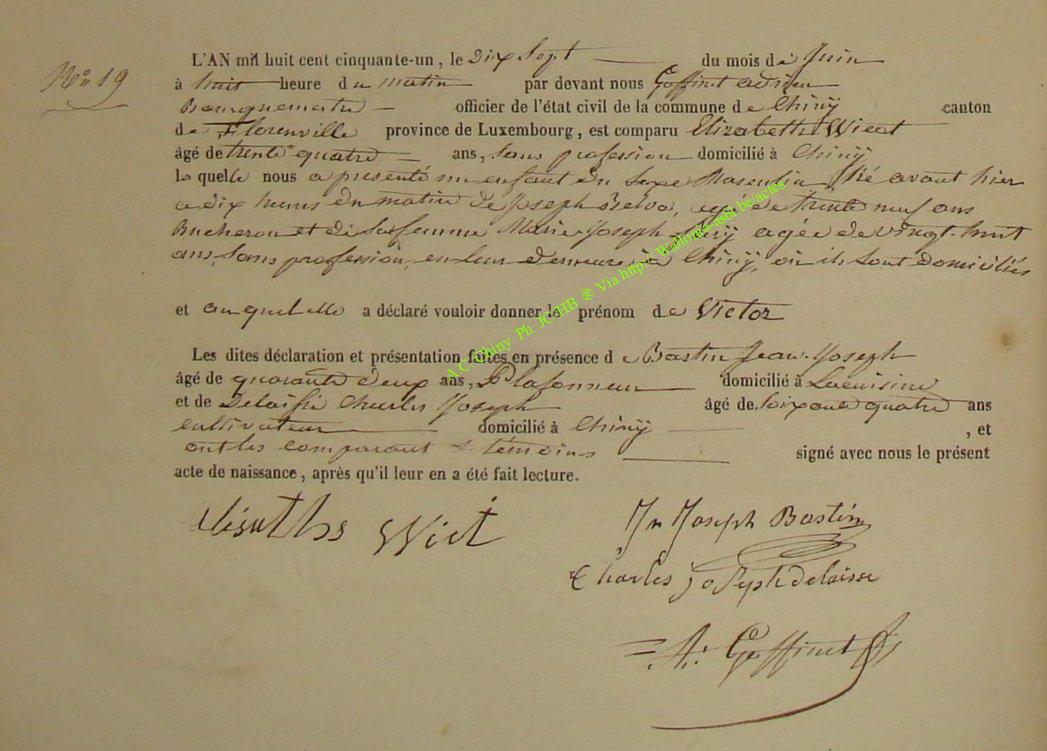 N° 19
L'AN mil huit cent cinquante-un, le Dix Sept du mois de Juin
à huit heure du matin par devant nous Goffinet adrien
Bourguemestre officier de l'état civil de la commune de Chiny canton
de Florenville province de Luxembourg, est comparu Elizabeth Wiect
âgé de trente quatre ans, Sans profession domicilié à Chiny
la quelle nous a présenté un enfant du Sexe Masculin, Né avant hier
a dix heures du matin de Joseph agé de trente neuf ans
Bucheron et de Sa femme Marie Joseph agée de vingt-huit
ans, Sans profession, en leur demeure à Chiny, où ils Sont domiciliés
et auquel elle a déclaré vouloir donner le prénom de Victor
Les dites déclaration et présentation faites en présence de Bastin Jean Joseph
âgé de quarante deux ans, Plafonneur domicilié à Lacuisine
et de Delaisse Charles Joseph âgé de Soixante quatre ans
cultivateur domicilié à Chiny, et
ont les comparant & témoins signé avec nous le présent
acte de naissance, après qu'il leur en a été fait lecture.
Wiect
Jn Joseph Bastin
Charles joseph delaisse
A. Goffinet
A.C. Chiny Ph. JC.HB ® Via http://Wallonia-asbl.be/actes